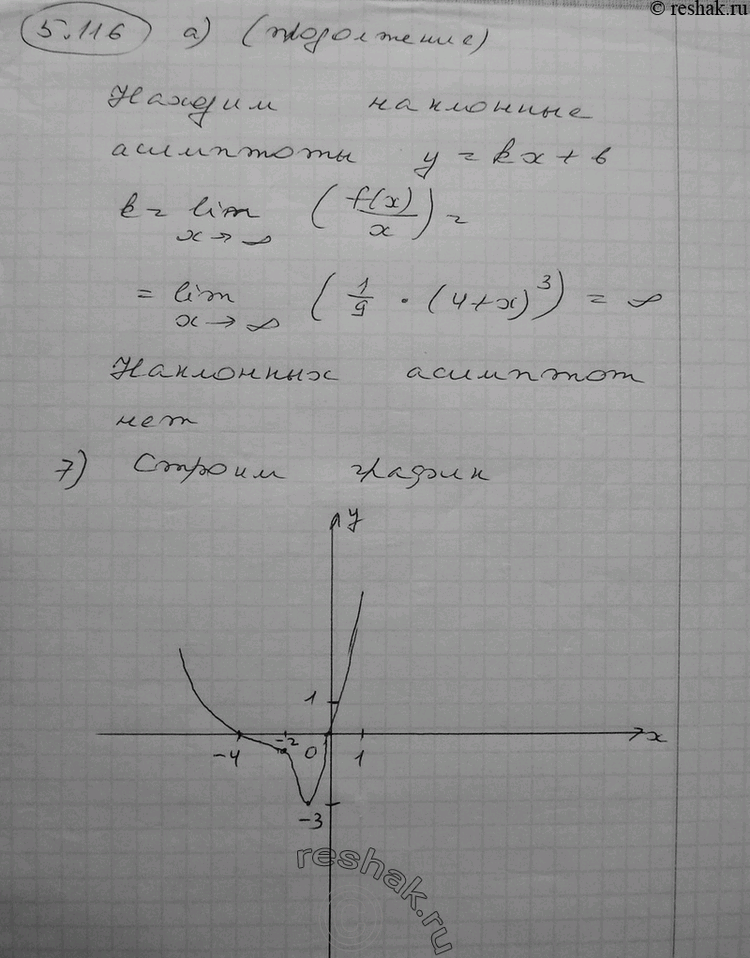 © reshak.ru
5.116 а) (продолжение)
Находим наклонные
асимптоты y = kx + b
k = lim x→∞ (f(x)/x) =
= lim x→∞ (1/9 · (4+x)^3) = ∞
Наклонных асимптот
нет
7) Строим график
y
1
-4 -2 0 1 x
-3
reshak.ru